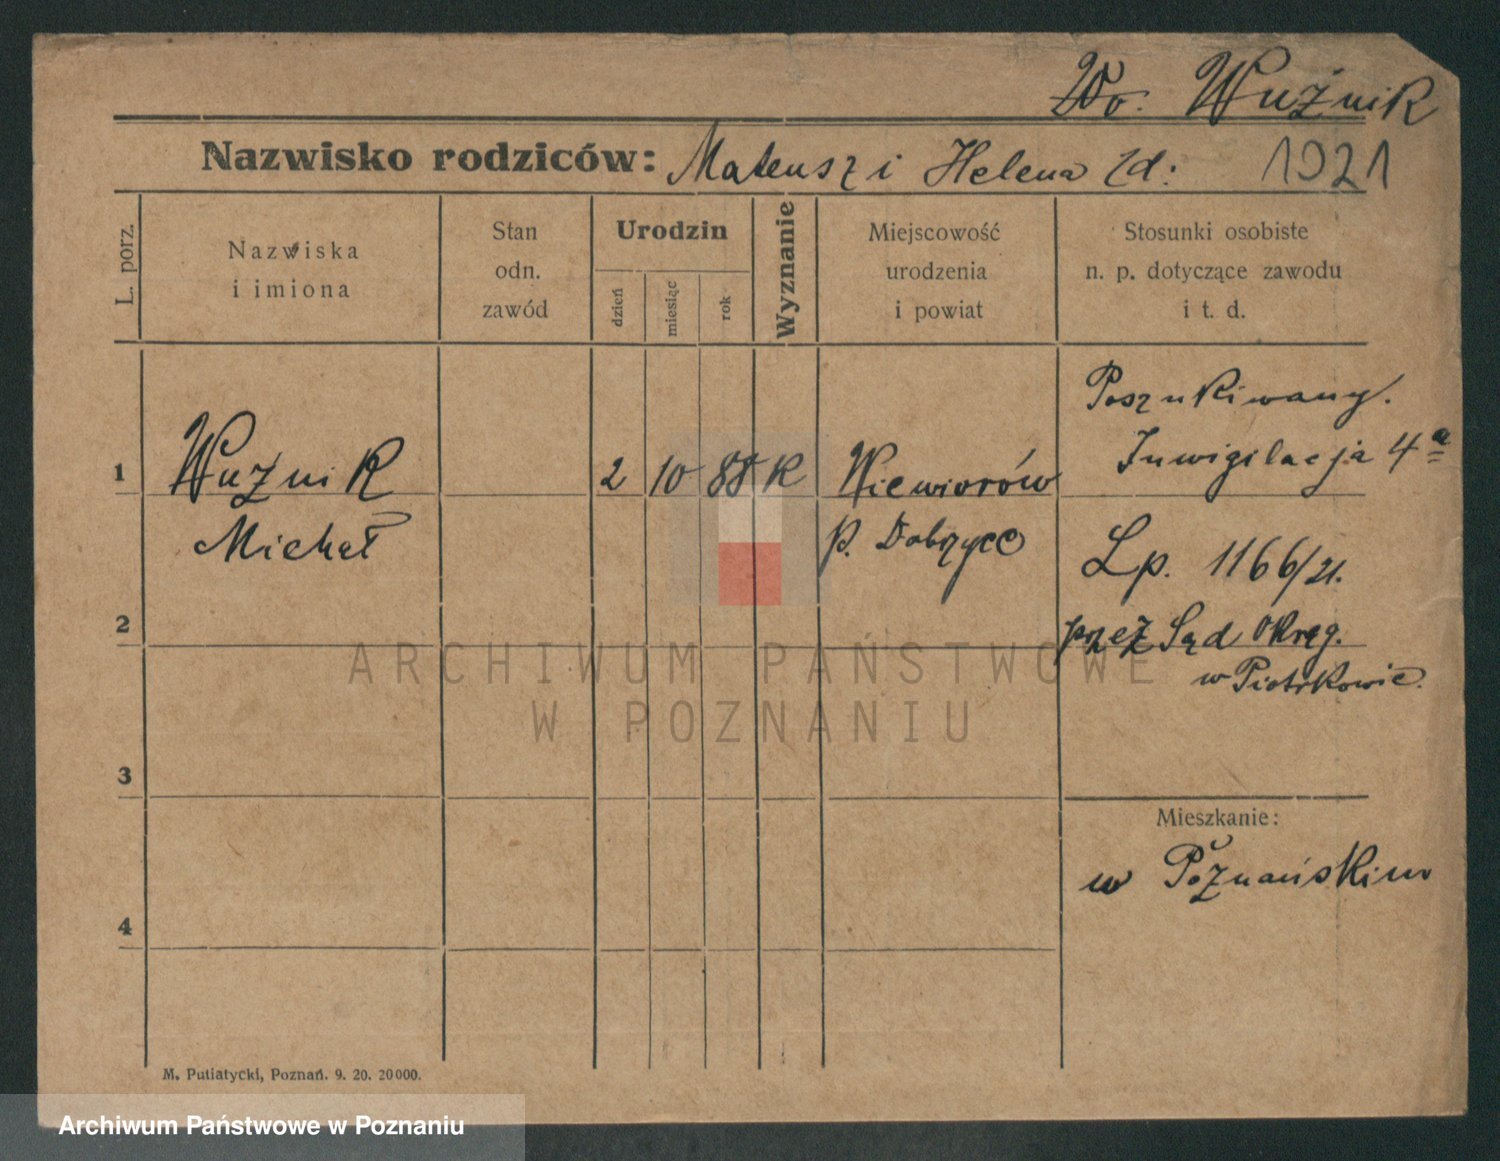 Wo. Wuźnik
Nazwisko rodziców: Mateusz i Helena zd: 1921
L. porz.
Nazwiska
i imiona
Stan
odn.
zawód
Urodzin
dzień
miesiąc
rok
Wyznanie
Miejscowość
urodzenia
i powiat
Stosunki osobiste
n. p. dotyczące zawodu
i t. d.
1
Wuźnik
Michał
2 10 88 K
Wiewiorów
p. Dobryce
Poszukiwany.
Inwigilacja 4a
Lp. 1166/21.
przez Sąd Okręg.
w Piotrkowie.
2
3
4
Mieszkanie:
w Poznańskim
M. Putiatycki, Poznań. 9. 20. 20000.
ARCHIWUM PAŃSTWOWE
W POZNANIU
Archiwum Państwowe w Poznaniu